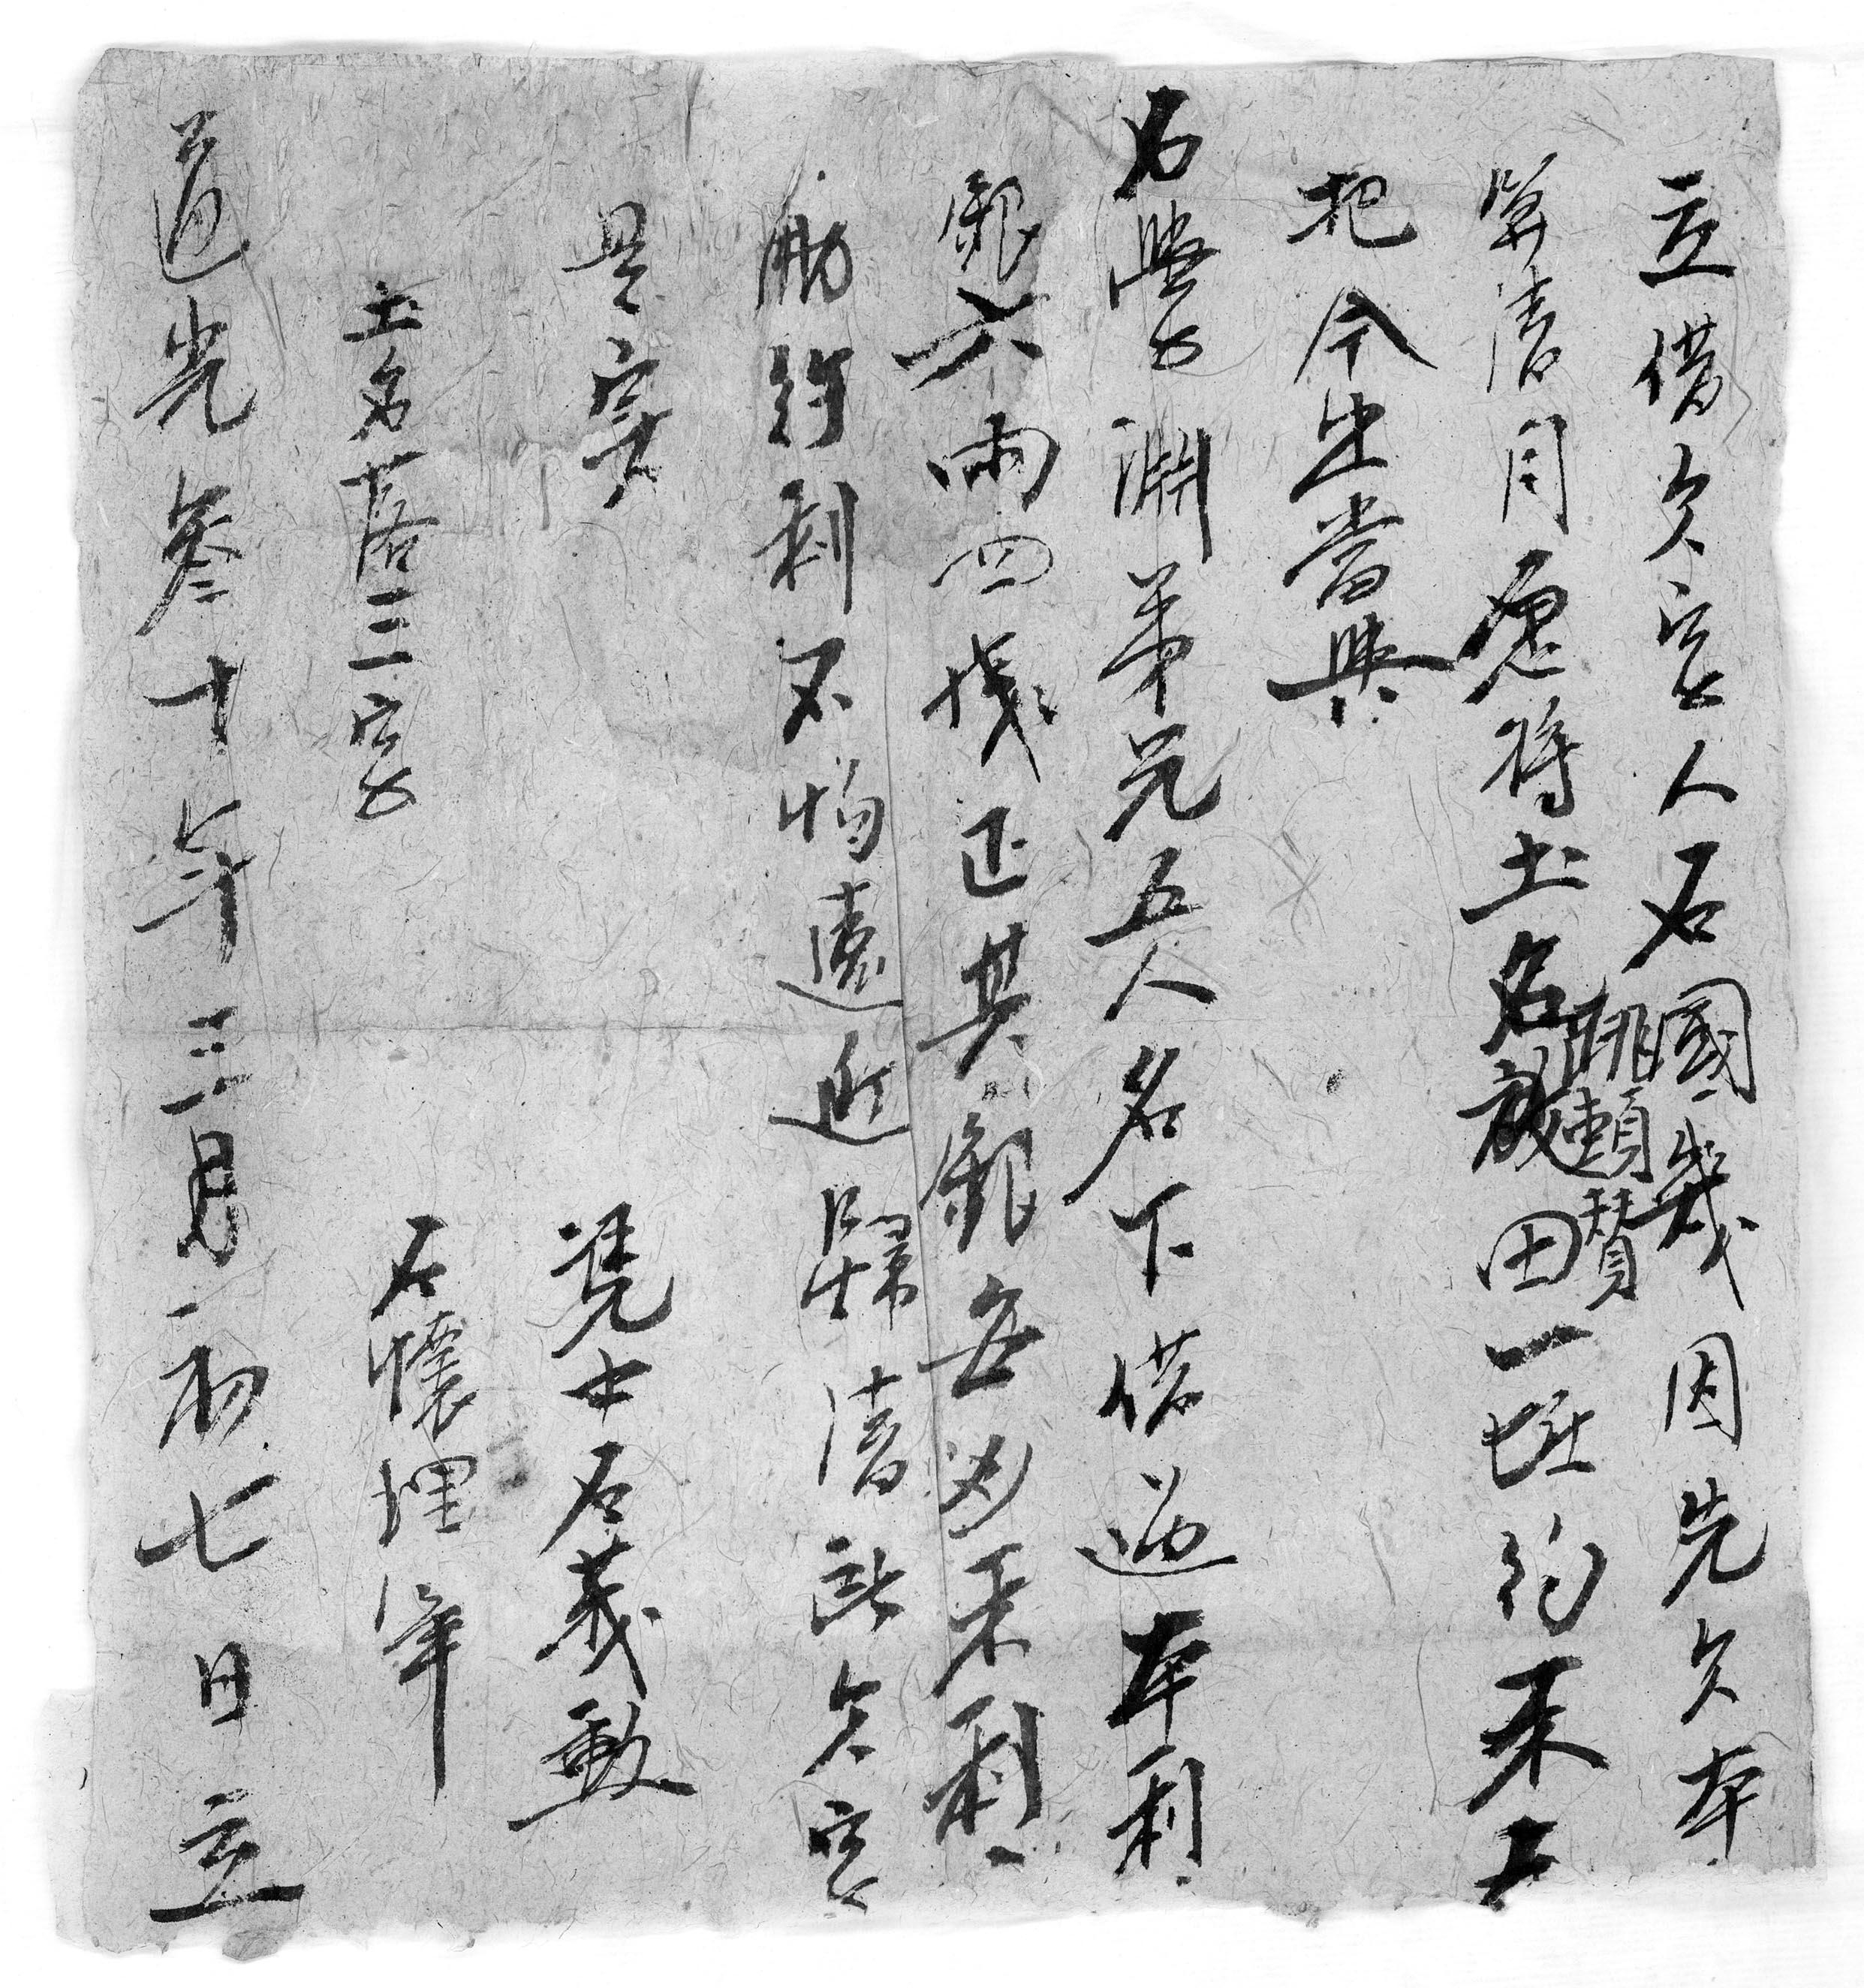 立借欠字人石國栽因先欠本
算清自愿将土名 田一坵約禾十
把今出當與
石學淵弟兄五人名下借過本利
銀六兩四錢正其銀每兩禾利
觔約利不怕遠近歸清立欠字
是寔
土名落三字
憑中石義勳
石懷理筆
道光叁十年三月初七日立